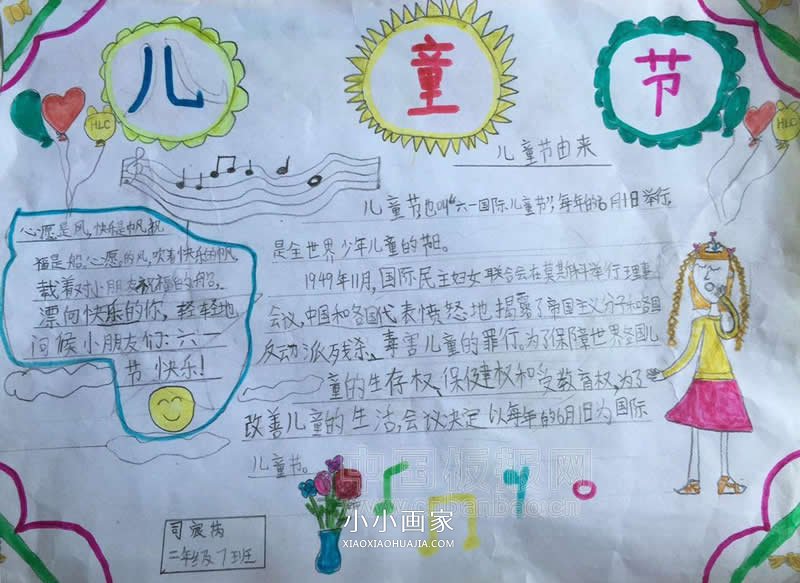 儿 童 节
HLC
HLC
儿童节由来
儿童节也叫“六一国际儿童节”,每年的6月1日举行,
是全世界少年儿童的节日。
1949年11月,国际民主妇女联合会在莫斯科举行理事
会议,中国和各国代表愤怒地揭露了帝国主义分子和各国
反动派残杀、毒害儿童的罪行。为了保障世界各国儿
童的生存权、保健权和受教育权,为了
改善儿童的生活,会议决定以每年的6月1日为国际
儿童节。
心愿是风,快乐是帆,祝
福是船。心愿的风,吹着快乐的帆,
载着对小朋友祝福的船,
漂向快乐的你,轻轻地
问候小朋友们:六一
节快乐!
二年级7班
中国板报网
小小画家
XIAOXIAOHUAJIA.COM